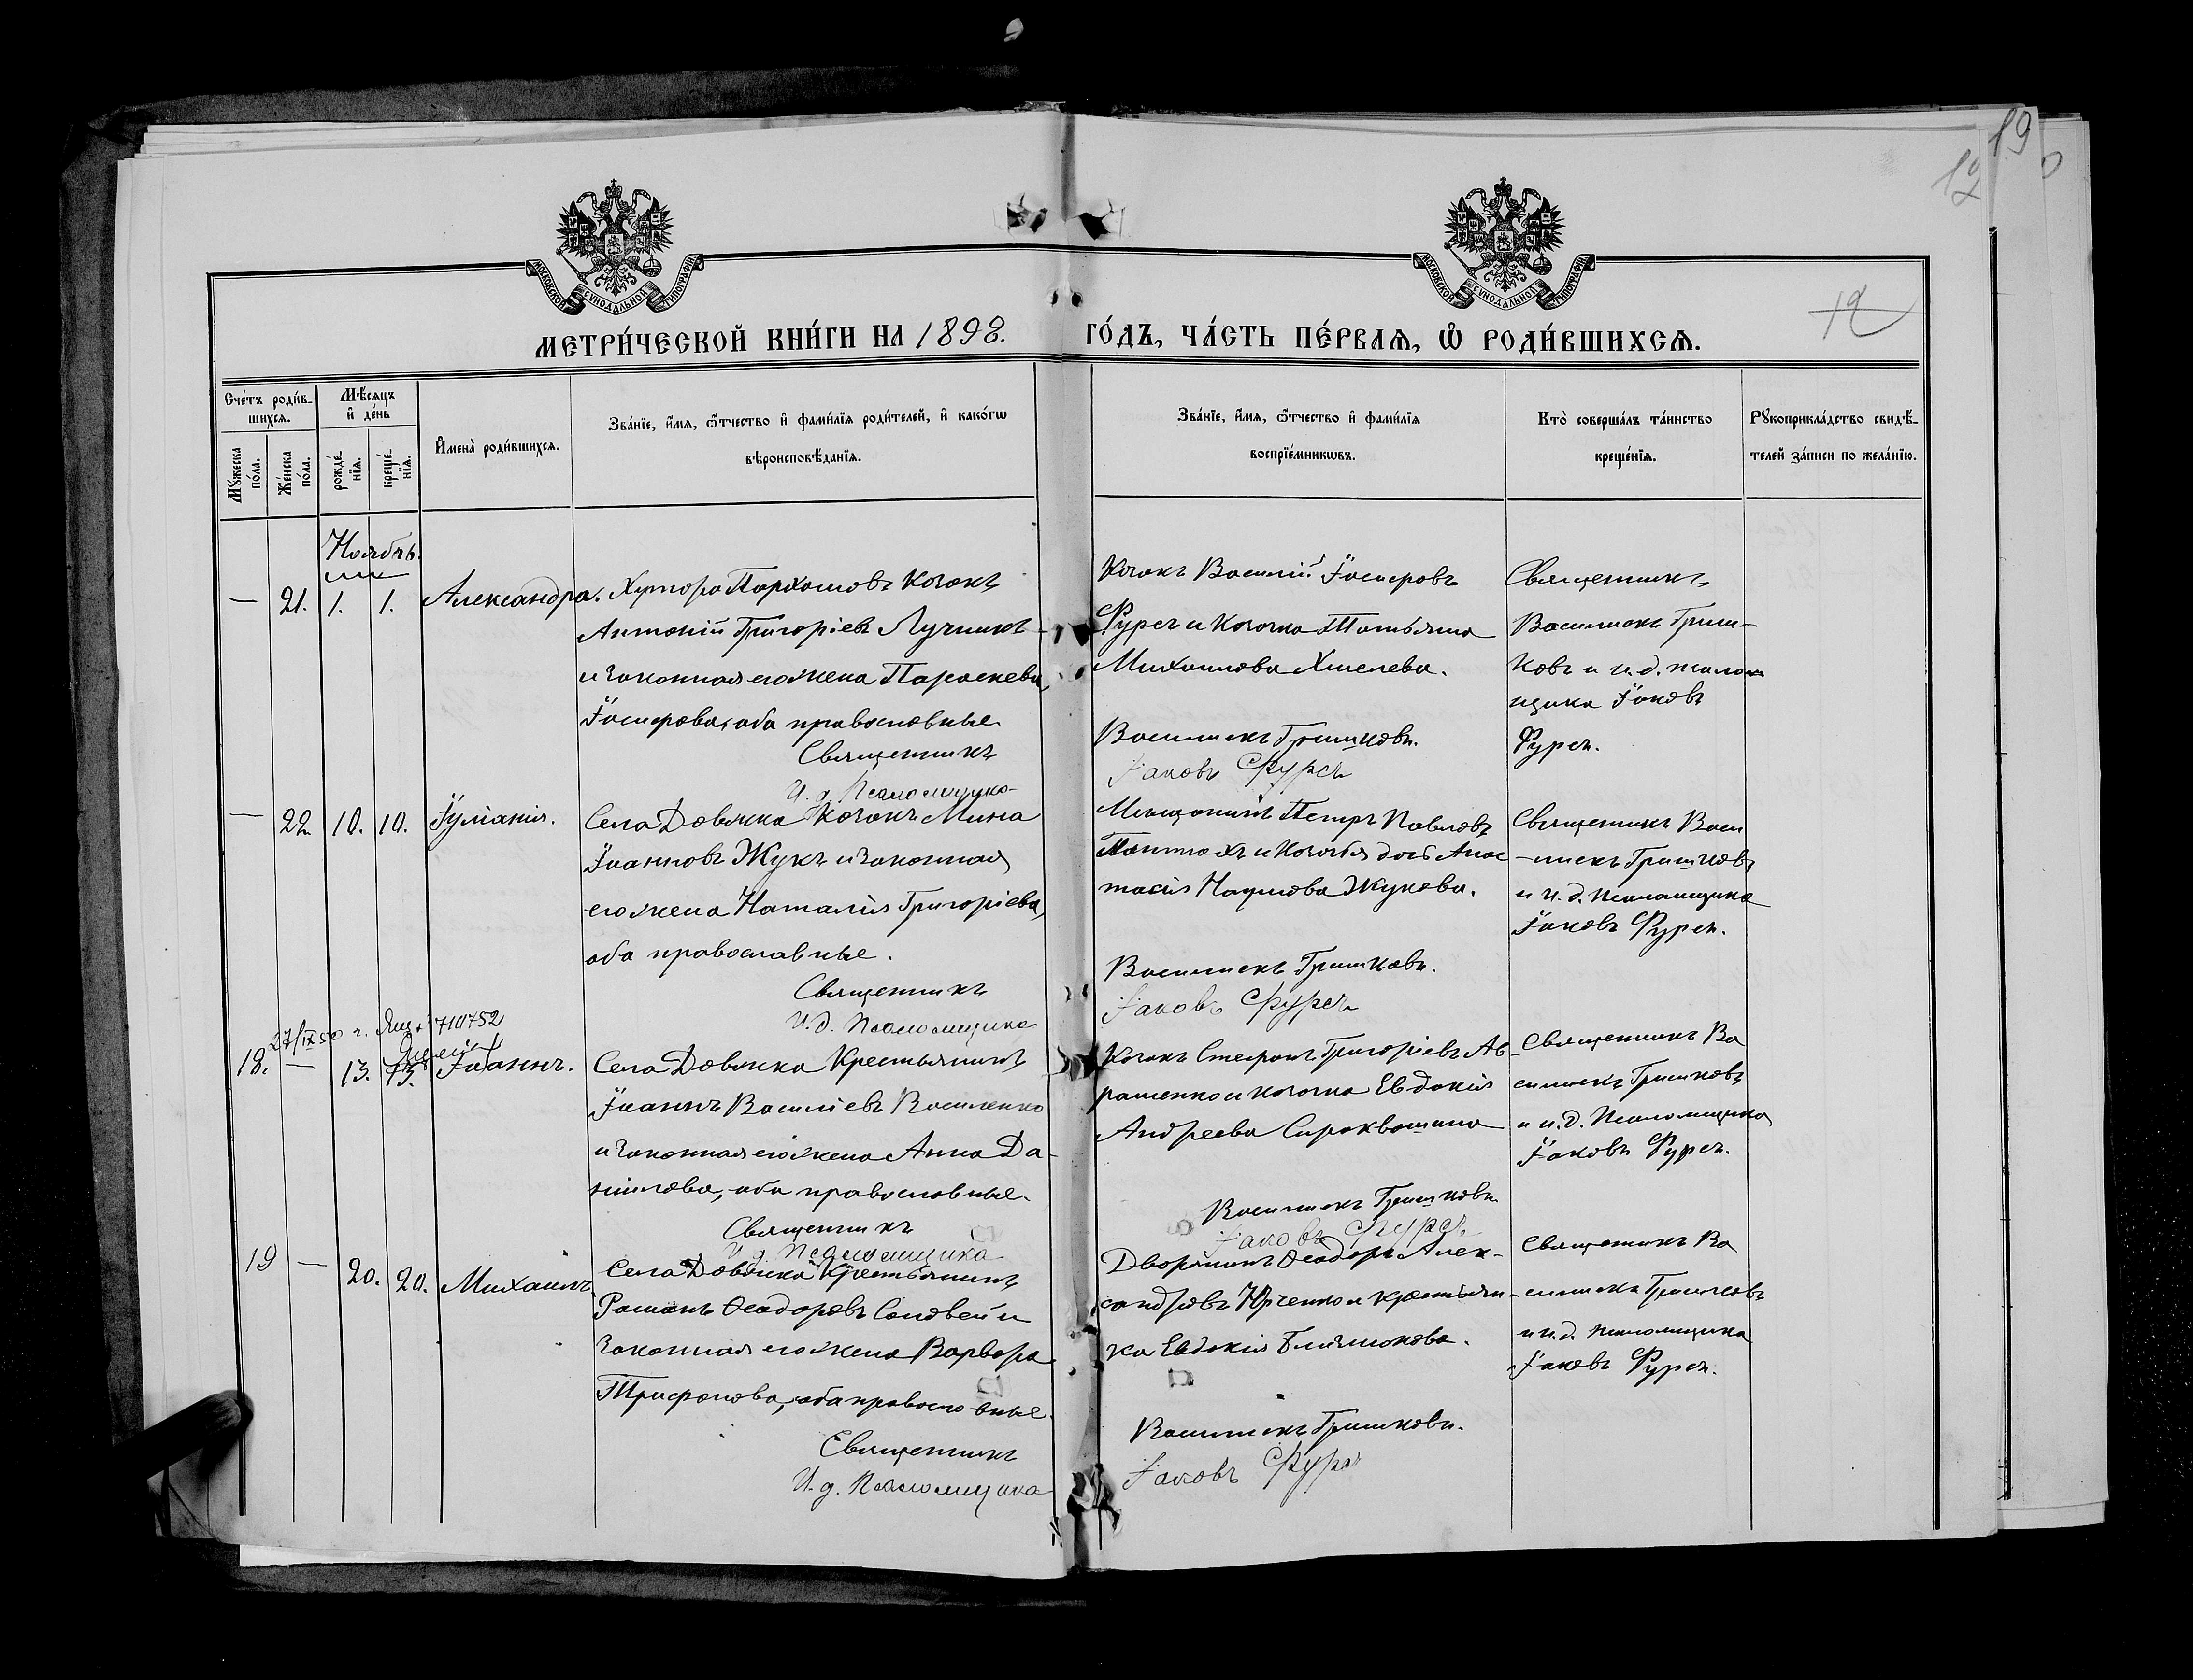 19
12
12
МОСКОВСКОЙ СѴНОДАЛЬНОЙ ТИПОГРАФІИ
МОСКОВСКОЙ СѴНОДАЛЬНОЙ ТИПОГРАФІИ
МЕТРИ́ЧЕСКОЙ КНИ́ГИ НА 1898. ГО́ДЪ, ЧА́СТЬ ПЕ́РВАѦ, Ѽ РОДИ́ВШИХСѦ.
Сче́тъ роди́в-
шихсѧ.
Мꙋ́жеска по́ла.
Же́нска по́ла.
Мѣ́сѧцъ и҆ де́нь
рожде́-
нїѧ.
креще́-
нїѧ.
И҆мена̀ роди́вшихсѧ.
Зва́нїе, и҆́мѧ, ѻ҆́тчество и҆ фами́лїѧ роди́телей, и҆ како́гѡ
вѣроисповѣ́данїѧ.
Зва́нїе, и҆́мѧ, ѻ҆́тчество и҆ фами́лїѧ
воспрїе́мникѡвъ.
Кто̀ соверша́лъ та́инство
креще́нїѧ.
Рꙋкоприкла́дство свидѣ́-
телей за́писи по жела́нїю.
Ноябрь.
— 21. 1. 1. Александра. Хутора Пархомов Козакъ
Антоній Григоріевъ Лучникъ
и законная его жена Параскева
Іосифова, оба православные
Священникъ
И. д. Псаломщика
Козакъ Василій Іосифовъ
Фурса и козачка Татьяна
Михаилова Хмелева.
Василискъ Гришковъ.
Іаковъ Фурса
Священникъ
Василискъ Гриш-
ковъ и и. д. псалом
щика Іаковъ
Фурса.
— 22 10. 10. Іуліанія. Села Довжка Козакъ Мина
Іоанновъ Жукъ и законная
его жена Наталія Григоріева,
оба православные.
Священникъ
И. д. Псаломщика
Мещанинъ Петръ Павловъ
и козачья дочь Анас
тасія Наумова Жукова.
Василискъ Гришковъ.
Іаковъ Фурса
Священникъ Васи
-лискъ Гришковъ
и и. д. псаломщика
Іаковъ Фурса.
27/IX 50 г. 710752
18. — 13. 13. Іоаннъ. Села Довжка Крестьянинъ
Іоаннъ Василіевъ Василенко
и законная его жена Анна Да-
ніилова, оба православные.
Священникъ
И. д. Псаломщика
Козакъ Стефанъ Григоріевъ Ав-
раменко и козачка Евдокія
Андреева Сироквашина
Василискъ Гришковъ
Іаковъ Фурса.
Священникъ Ва
силискъ Гришковъ
и и. д. Псаломщика
Іаковъ Фурса.
19 — 20. 20. Михаилъ. Села Довжка Крестьянинъ
Романъ Ѳеодоровъ Соловей и
законная его жена Варвара
Трифонова, оба православные.
Священникъ
И. д. Псаломщика
Дворянинъ Ѳеодоръ Алек-
сандровъ Юрченко и крестьян-
ка Евдокія
Василискъ Гришковъ.
Іаковъ Фурса
Священникъ Ва
силискъ Гришковъ
и и. д. псаломщика
Іаковъ Фурса.